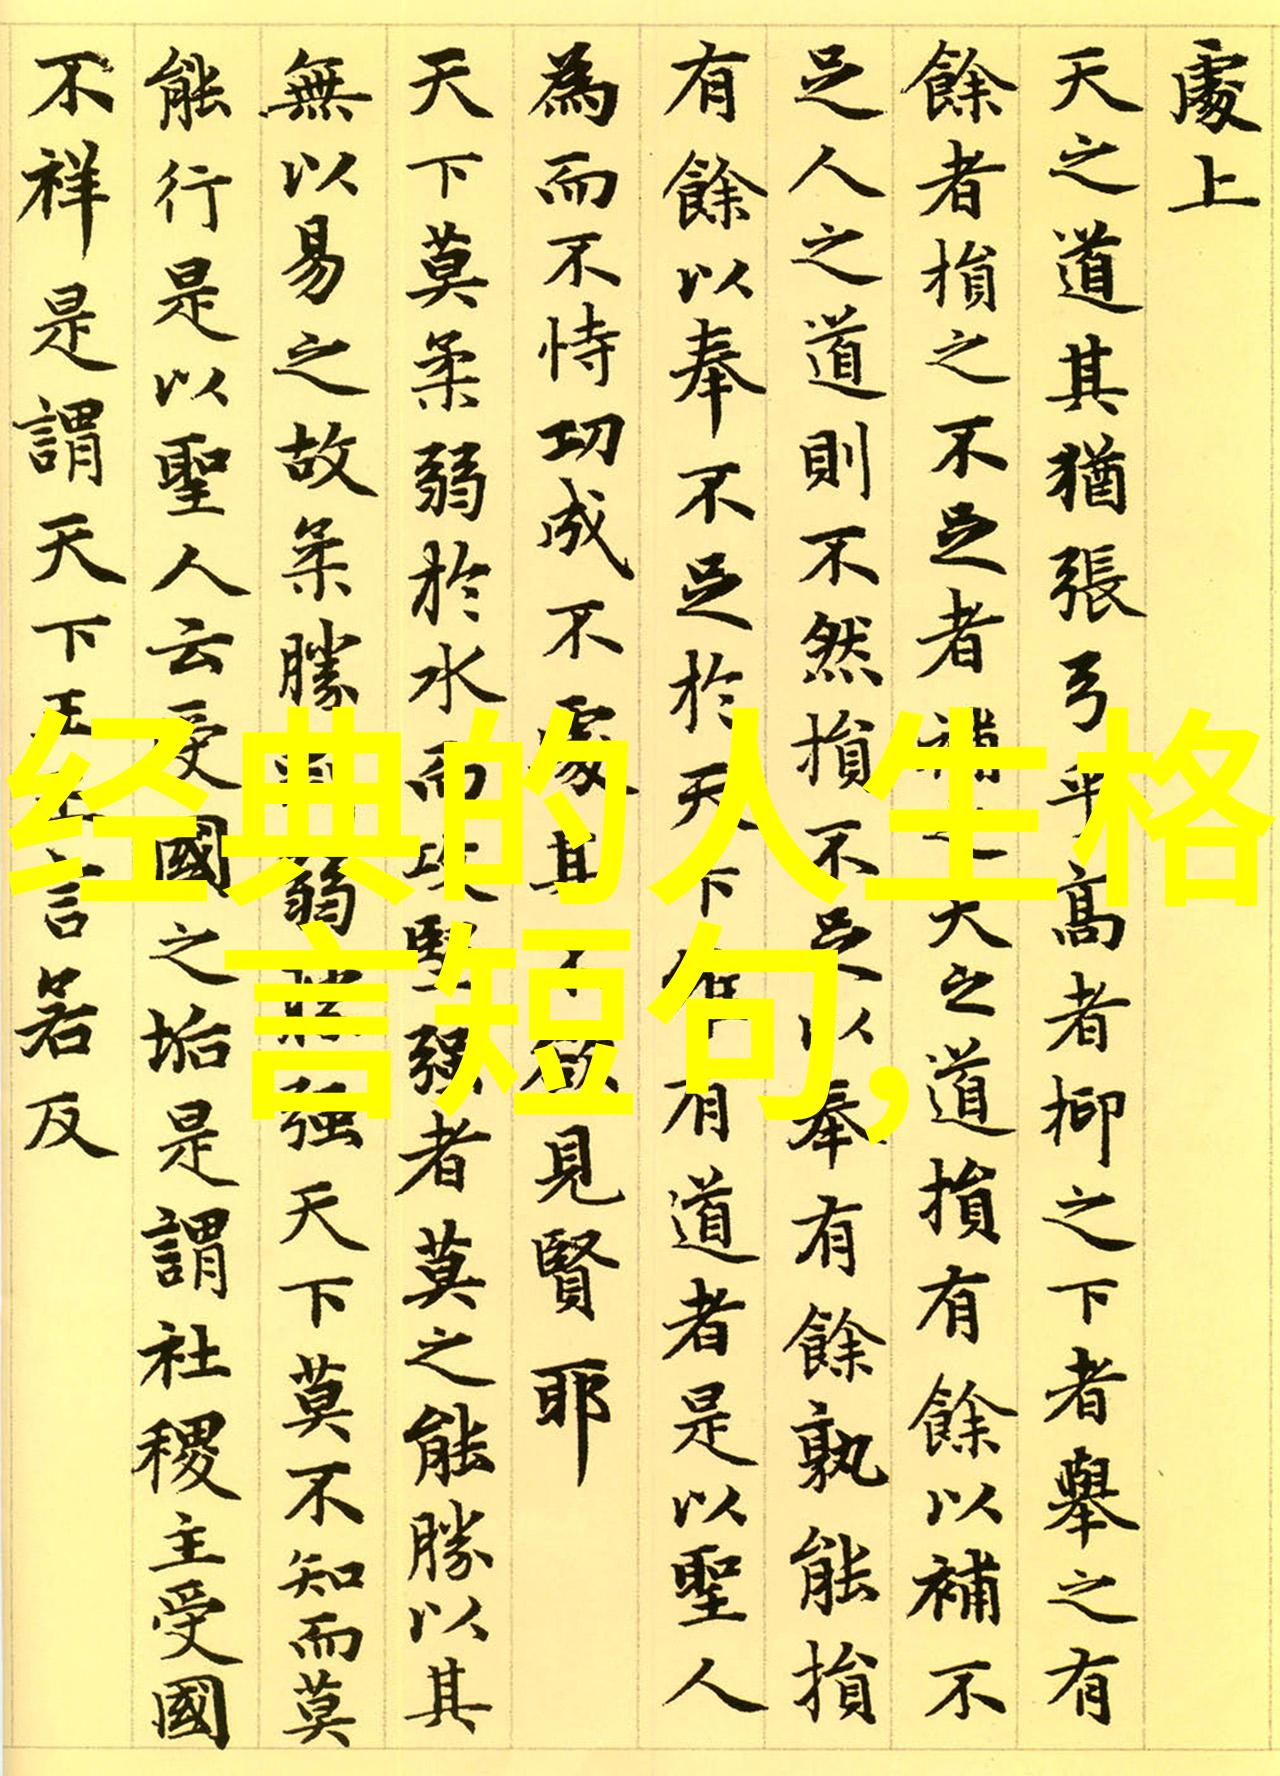 處上
天之道其猶張弓乎高者抑之下者舉之有
餘者損之不足者補之天之道損有餘以補不
足人之道則不然損不足以奉有餘孰能損
有餘以奉不足於天下唯有道者是以聖人
為而不恃功成不處其不欲見賢耶
天下莫柔弱於水而攻堅强者莫之能勝以其
無以易之故柔勝剛弱勝强天下莫不知而莫
能行是以聖人云受國之垢是謂社稷主受國
不祥是謂天下王正言若反
经典的人生格
言短句,